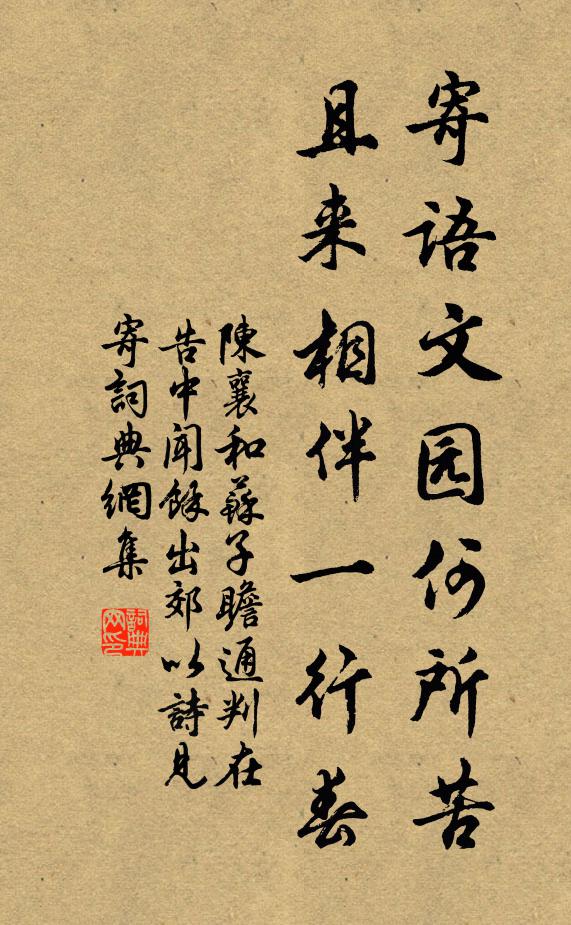 寄语文园何所苦
且来相伴一行春
陳襄和蘇子瞻通判在
告中闻餘出郊以詩見
寄詞典網集
詞典
网印